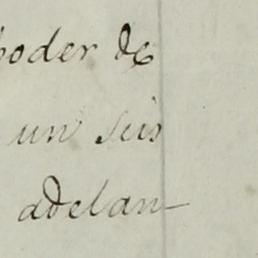 poder de
un seis
adelan-